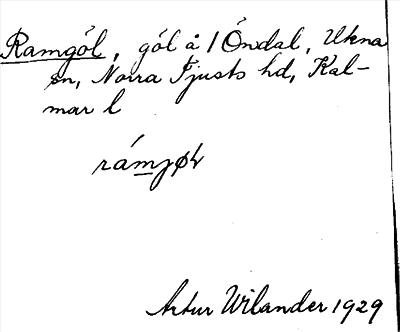 Ramgöl, göl å 1 Öndal, Ukna
sn, Norra Tjusts hd, Kal-
mar l
rámjøl
Artur Wilander 1929